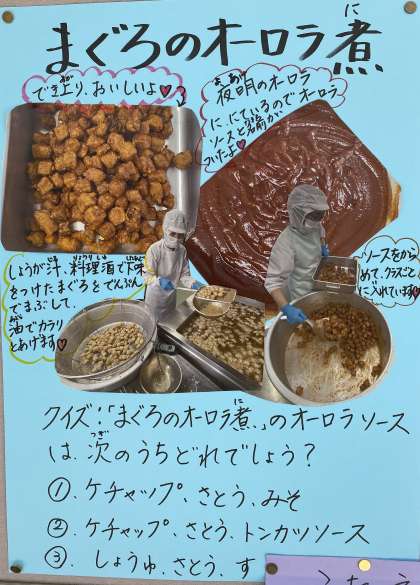 まぐろのオーロラ煮
でき上り、おいしいよ♥
夜明のオーロラ
に、にているのでオーロラ
ソースと名前が
ついたよ♥
しょうが汁、料理酒で下味
をつけたまぐろをでんぷん
でまぶして、
油でカラリ
とあげます♥
ソースをから
めて、クラスごと
に入れています♥
クイズ:「まぐろのオーロラ煮、」のオーロラソース
は、次のうちどれでしょう?
①、ケチャップ、さとう、みそ
②、ケチャップ、さとう、トンカツソース
③、しょうゆ、さとう、す